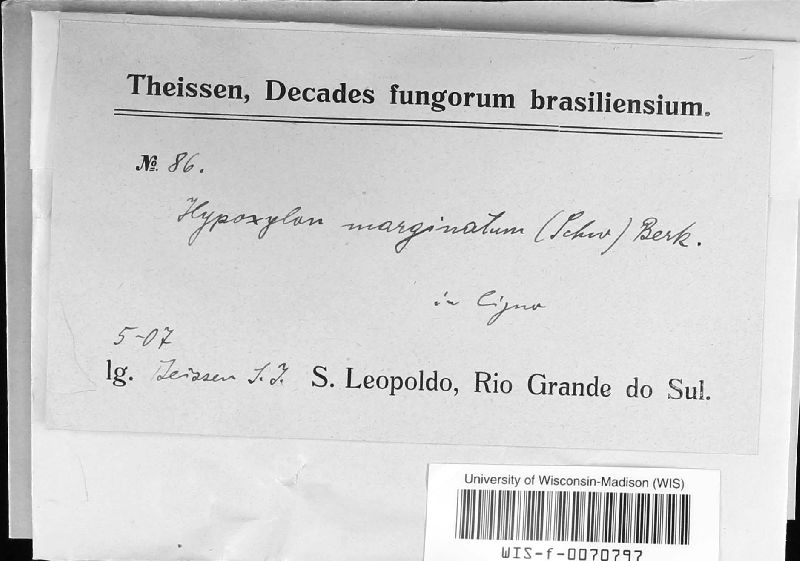 Theissen, Decades fungorum brasiliensium.
№ 86.
Hypoxylon marginatum (Schw) Berk.
in ligno
5-07
lg. Theissen S. J. S. Leopoldo, Rio Grande do Sul.
University of Wisconsin-Madison (WIS)
WIS-f-0070797